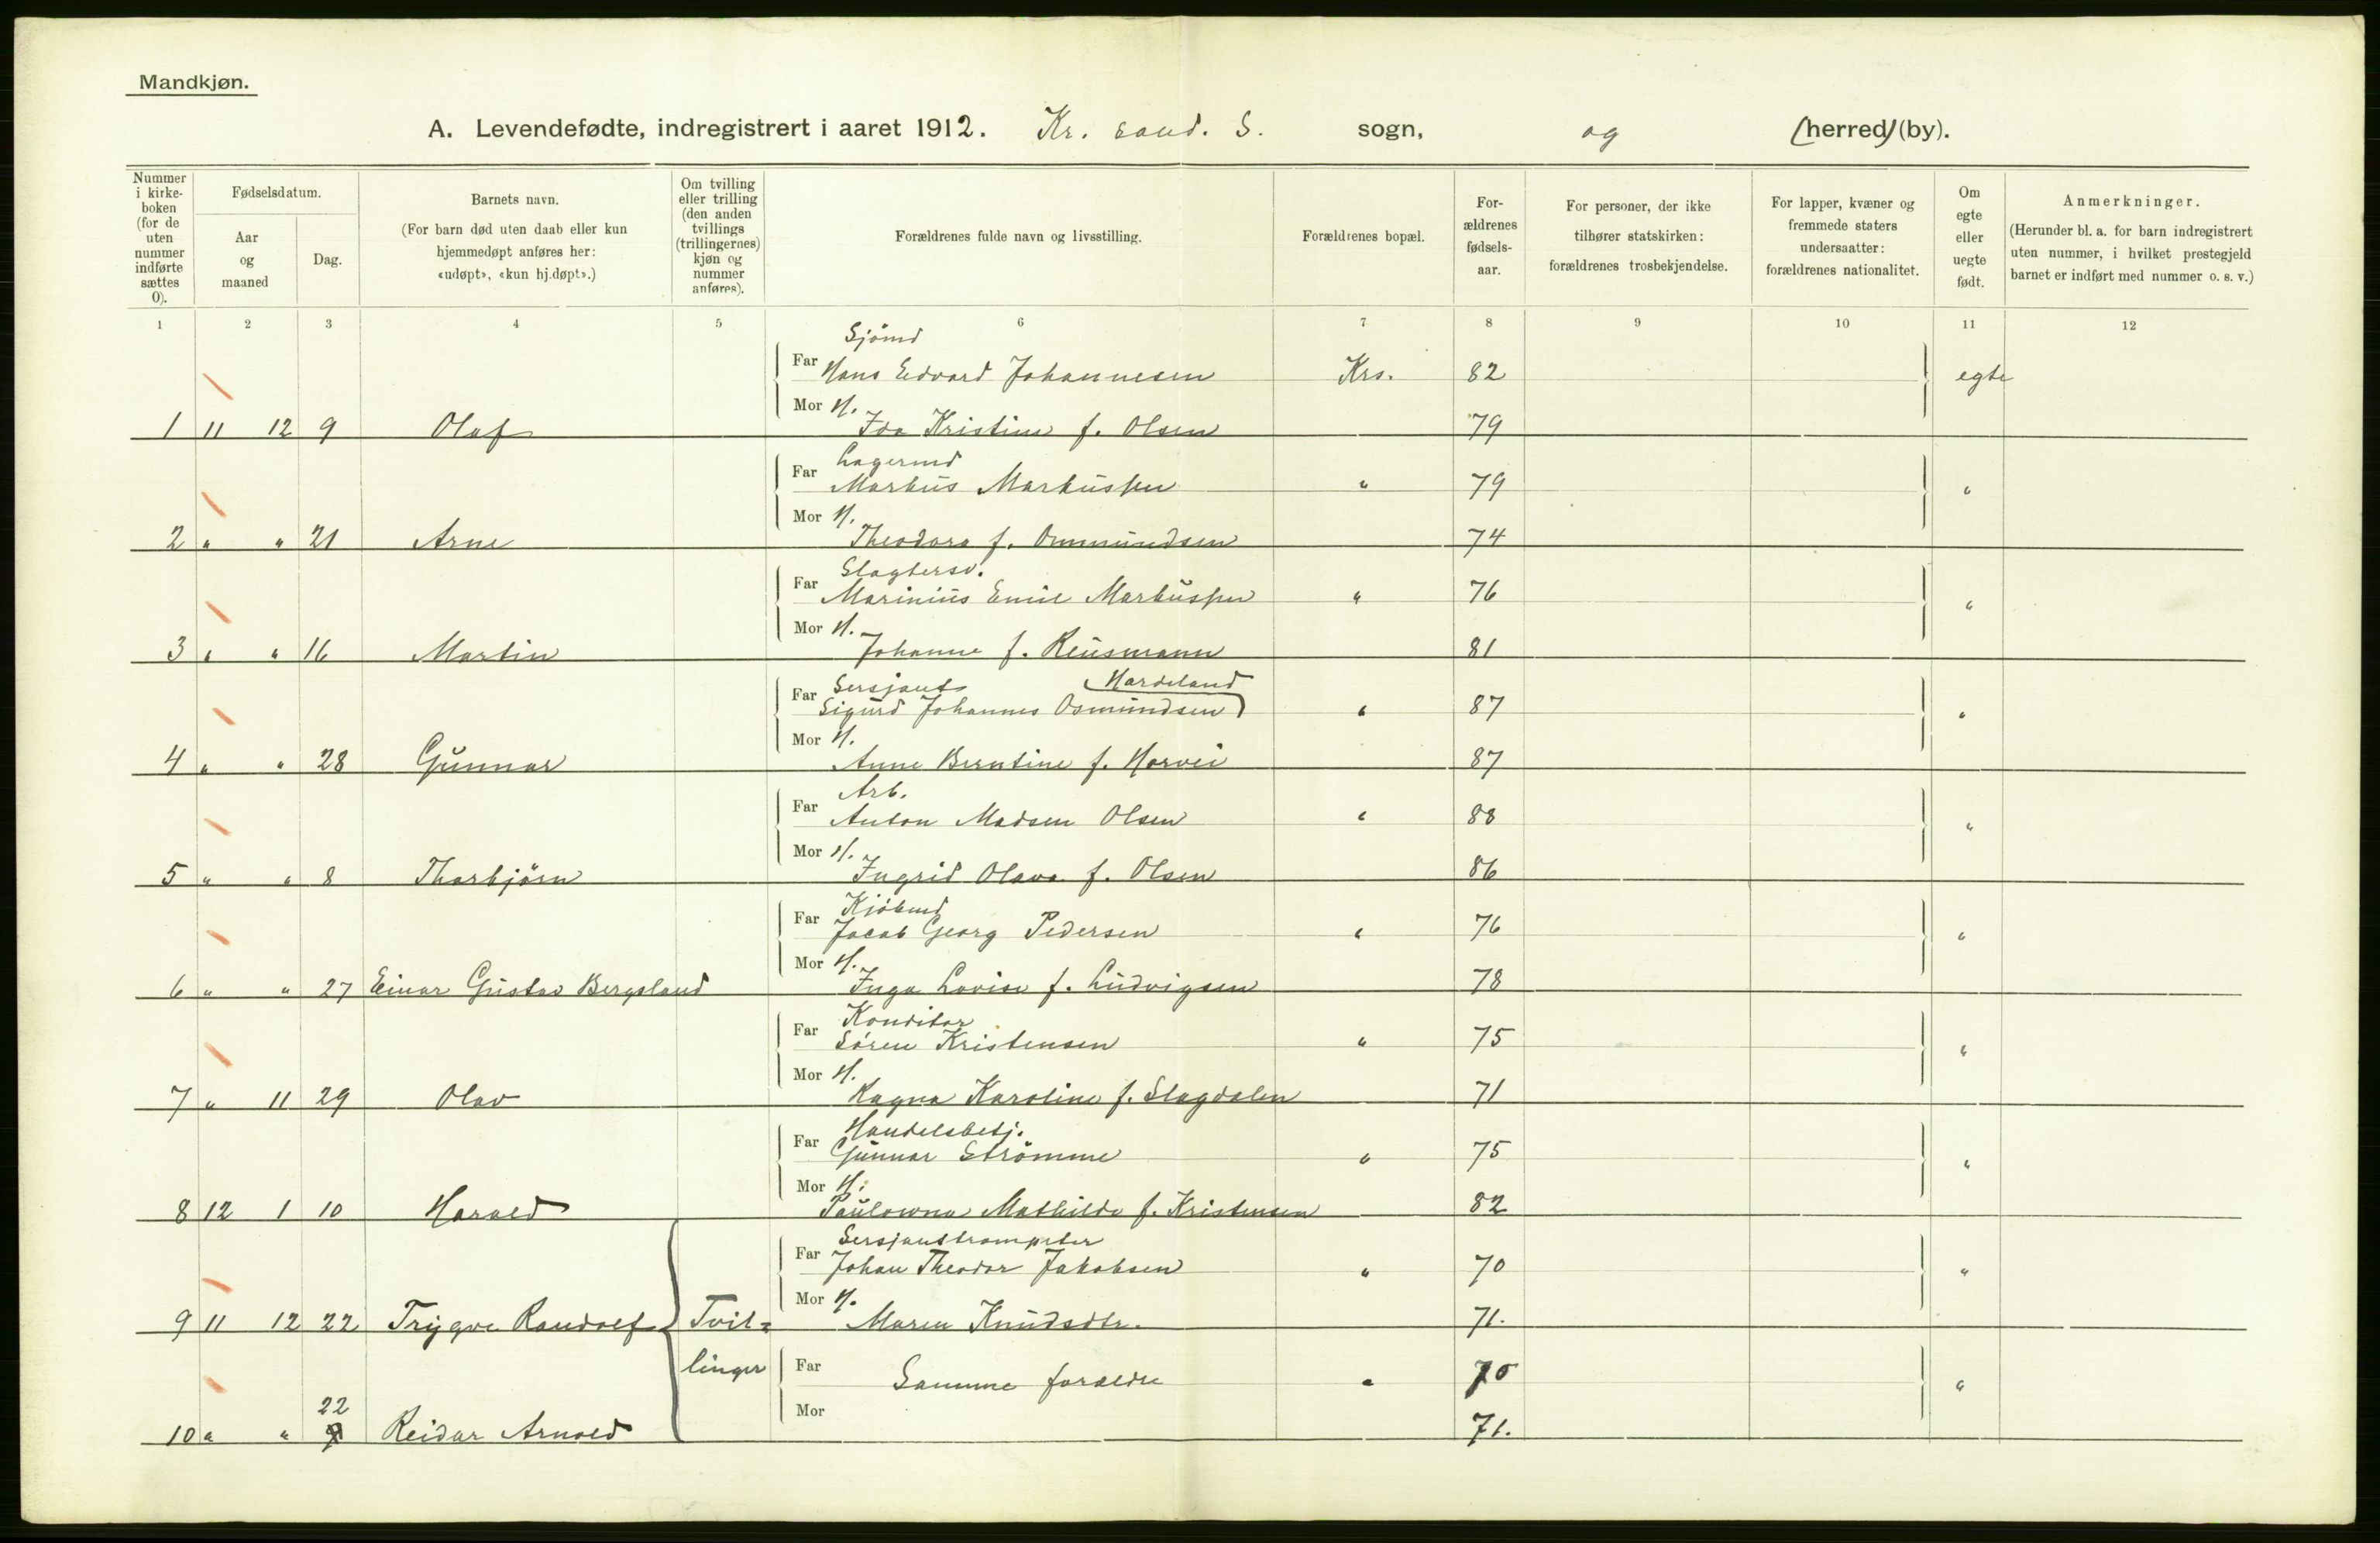 Mandkjøn.
A. Levendefødte, indregistrert i aaret 1912. Kr. sand. S. sogn, og (herred) (by).
Nummer i kirkeboken (for de uten nummer indførte sættes 0).
Fødselsdatum.
Aar og maaned
Dag.
Barnets navn.
(For barn død uten daab eller kun hjemmedøpt anføres her: «udøpt», «kun hj.døpt».)
Om tvilling eller trilling (den anden tvillings (trillingernes) kjøn og nummer anføres).
Forældrenes fulde navn og livsstilling.
Forældrenes bopæl.
Forældrenes fødselsaar.
For personer, der ikke tilhører statskirken: forældrenes trosbekjendelse.
For lapper, kvæner og fremmede staters undersaatter: forældrenes nationalitet.
Om egte eller uegte født.
Anmerkninger.
(Herunder bl. a. for barn indregistrert uten nummer, i hvilket prestegjeld barnet er indført med nummer o. s. v.)
1 2 3 4 5 6 7 8 9 10 11 12
Sjömd
Far Hans Edvard Johannesen Krs. 82 egte
Mor H.
1 11 12 9 Olaf Ida Kristine f. Olsen 79
Lagermd
Far Markus Markussen " 79 "
Mor H.
2 " " 21 Arne Theodora f. Ommundsen 74
Slagtersv.
Far Marinius Emil Markussen " 76 "
Mor H.
3 " " 16 Martin Johanne f. Reusmann 81
Sersjant (Hardeland
Far Sigurd Johannes Osmundsen) " 87 "
Mor H.
4 " " 28 Gunnar Anne Berntine f. Horvei 87
Arb.
Far Anton Madsen Olsen " 88 "
Mor H.
5 " " 8 Thorbjörn Ingrid Olava f. Olsen 86
Kjöbmd
Far Jacob Georg Pedersen " 76 "
Mor H.
6 " " 27 Einar Gustav Bergsland Inga Lovise f. Ludvigsen 78
Konditor
Far Sören Kristensen " 75 "
Mor H.
7 " 11 29 Olav Ragna Karoline f. Slagdalen 71
Handelsbetj.
Far Gunnar Strömme " 75 "
Mor H.
8 12 1 10 Harald Paulowna Mathilde f. Kristensen 82
Sersjanttrompeter
Far Johan Theodor Jakobsen " 70 "
Mor H.
9 11 12 22 Trygve Randolf Tvil= Maren Knudsdtr. 71.
linger Far Samme foreldre " 70 "
22
Mor
10 " " Reidar Arnold 71.